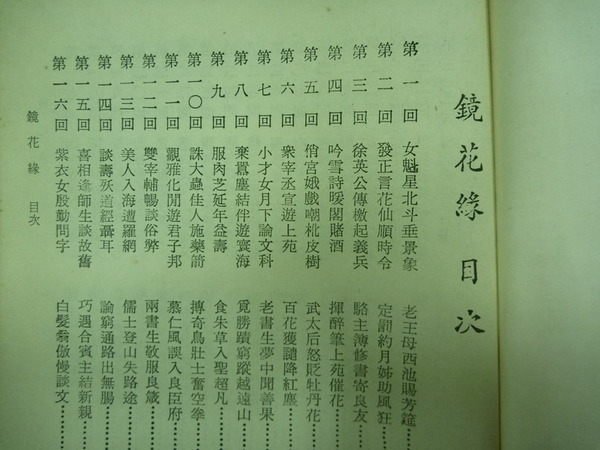 鏡花緣 目次
第一回 女魁星北斗垂景象 老王母西池賜芳筵
第二回 發正言花仙順時令 定罰約月姊助風狂
第三回 徐英公傳檄起義兵 駱主簿修書寄良友
第四回 吟雪詩暖閣賭酒 揮醉筆上苑催花
第五回 俏宮娥戲嘲枇皮樹 武太后怒貶牡丹花
第六回 衆宰丞宣遊上苑 百花獲譴降紅塵
第七回 小才女月下論文科 老書生夢中聞善果
第八回 棄囂塵結伴遊寰海 覓勝蹟窮蹤越遠山
第九回 服肉芝延年益壽 食朱草入聖超凡
第一〇回 誅大蟲佳人施藥箭 搏奇鳥壯士奮空拳
第一一回 觀雅化閒遊君子邦 慕仁風誤入良臣府
第一二回 雙宰輔暢談俗弊 兩書生敬服良箴
第一三回 美人入海遭羅網 儒士登山失路途
第一四回 談壽夭道經聶耳 論窮通路出無腸
第一五回 喜相逢師生談故舊 巧遇合賓主結新親
第一六回 紫衣女殷勤問字 白髮翁傲慢談文
鏡花緣 目次